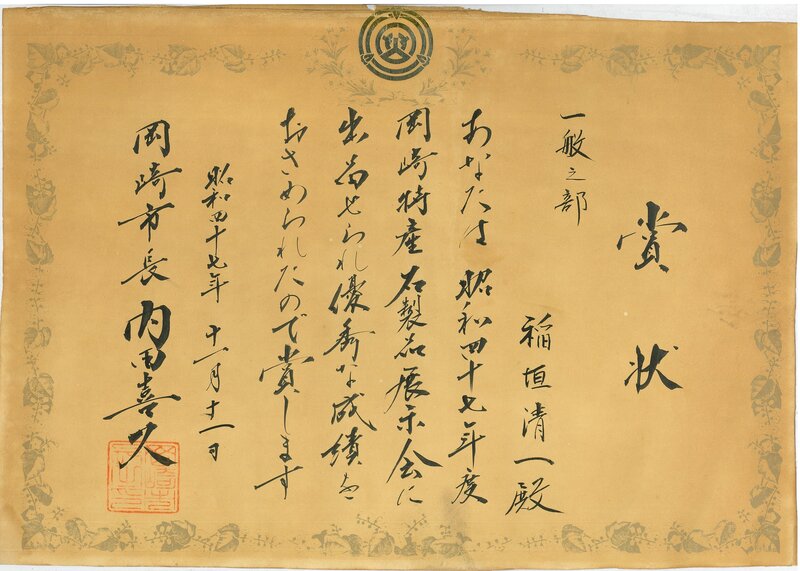 賞状
一般之部
稲垣清一殿
あなたは昭和四十七年度
岡崎特産石製品展示会に
出品せられ優秀な成績を
おさめられたので賞します
昭和四十七年十一月十一日
岡崎市長内田喜久